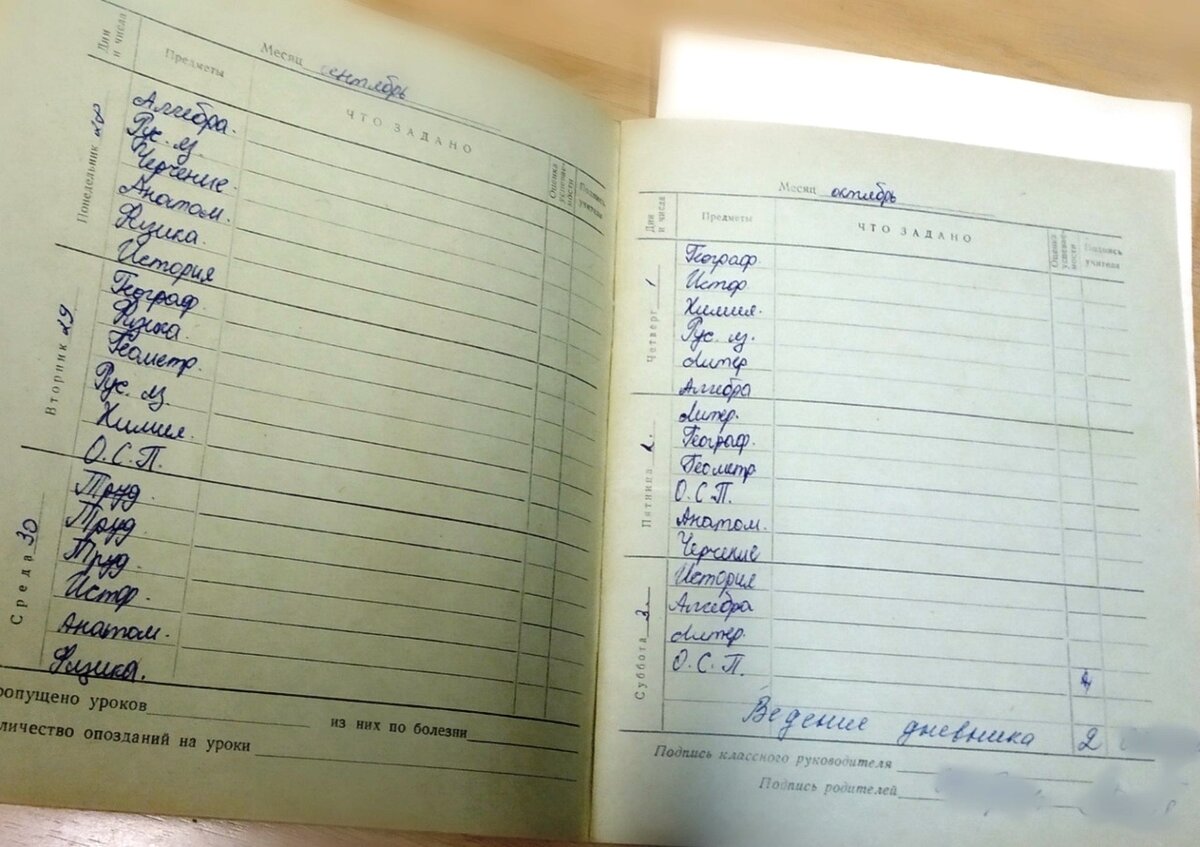 Месяц сентябрь
Дни и числа
Предметы
ЧТО ЗАДАНО
Оценка успеваемости
Подпись учителя
Понедельник 28
Алгебра.
Рус. яз.
Черчение.
Анатом.
Физика.
История
Вторник 29
Географ.
Физика.
Геометр.
Рус. яз.
Химия.
О.С.П.
Среда 30
Труд.
Труд.
Труд.
Истор.
Анатом.
Физика.
ропущено уроков из них по болезни
личество опозданий на уроки
Месяц октябрь
Дни и числа
Предметы
ЧТО ЗАДАНО
Оценка успеваемости
Подпись учителя
Четверг 1
Географ.
Истор
Химия.
Рус. яз.
Литер
Алгебра
Пятница 2.
Литер.
Географ.
Геометр
О.С.П.
Анатом.
Черчение
Суббота 3.
История
Алгебра
Литер.
О.С.П.
4
Ведение дневника 2
Подпись классного руководителя
Подпись родителей